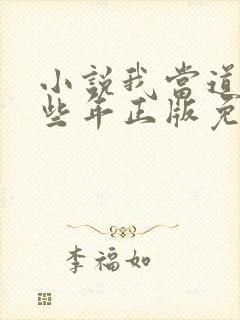 小说我当道
些年正版免
李福如